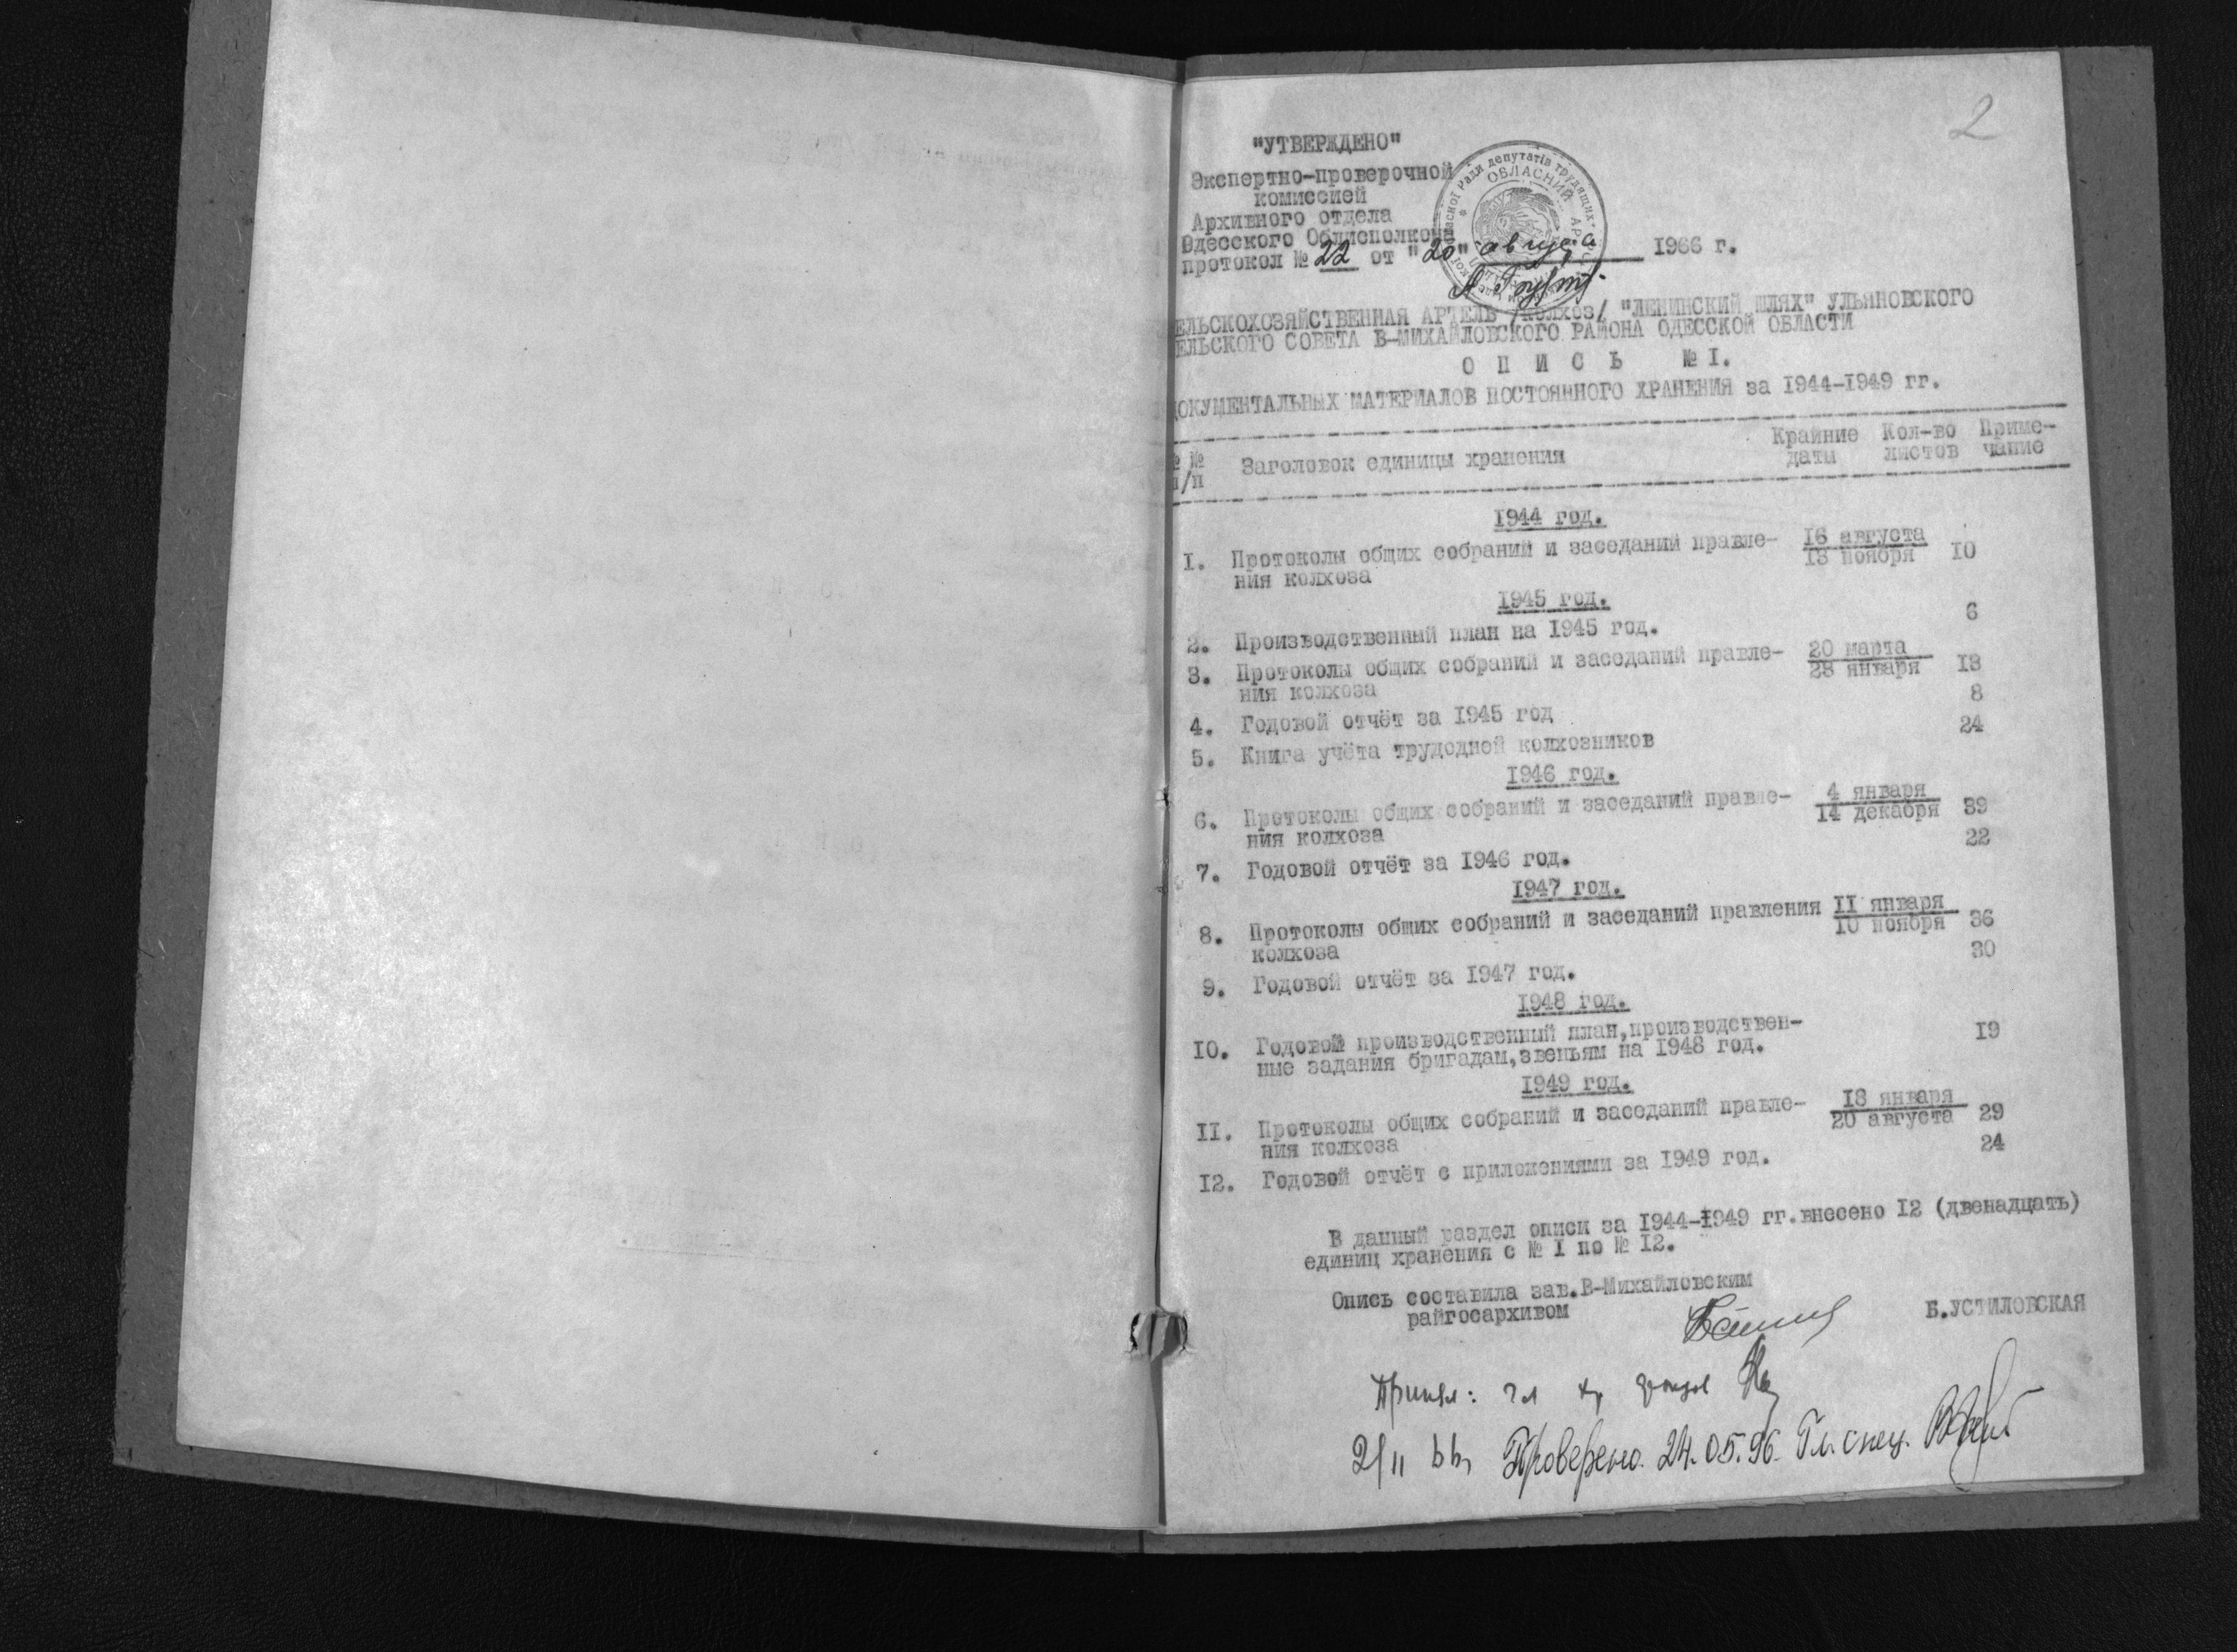 2
"УТВЕРЖДЕНО"
Экспертно-проверочной
комиссией
Архивного отдела
Одесского Облисполкома
протокол № 22 от "20" августа 1966 г.
ОБЛАСНИЙ
ЕЛЬСКОХОЗЯЙСТВЕННАЯ АРТЕЛЬ /колхоз/ "ЛЕНИНСКИЙ ШЛЯХ" УЛЬЯНОВСКОГО
ЕЛЬСКОГО СОВЕТА В-МИХАЙЛОВСКОГО РАЙОНА ОДЕССКОЙ ОБЛАСТИ
О П И С Ь № I.
ДОКУМЕНТАЛЬНЫХ МАТЕРИАЛОВ ПОСТОЯННОГО ХРАНЕНИЯ за 1944-1949 гг.
№ № п/п Заголовок единицы хранения Крайние даты Кол-во листов Приме-чание
1944 год.
I. Протоколы общих собраний и заседаний правле- 16 августа
ния колхоза 13 ноября 10
1945 год.
2. Производственный план на 1945 год. 6
3. Протоколы общих собраний и заседаний правле- 20 марта
ния колхоза 28 января 13
4. Годовой отчёт за 1945 год 8
5. Книга учёта трудодней колхозников 24
1946 год.
6. Протоколы общих собраний и заседаний правле- 4 января
ния колхоза 14 декабря 39
7. Годовой отчёт за 1946 год. 22
1947 год.
8. Протоколы общих собраний и заседаний правления 11 января
колхоза 10 ноября 36
9. Годовой отчёт за 1947 год. 30
1948 год.
10. Годовой производственный план,производствен-
ные задания бригадам,звеньям на 1948 год. 19
1949 год.
11. Протоколы общих собраний и заседаний правле- 13 января
ния колхоза 20 августа 29
12. Годовой отчёт с приложениями за 1949 год. 24
В данный раздел описи за 1944-1949 гг.внесено 12 (двенадцать)
единиц хранения с № I по № 12.
Опись составила зав.В-Михайловским
райгосархивом Б.УСТИЛОВСКАЯ
Принял: гл хр фондов
Проверено 24.05.96. Гл. спец.